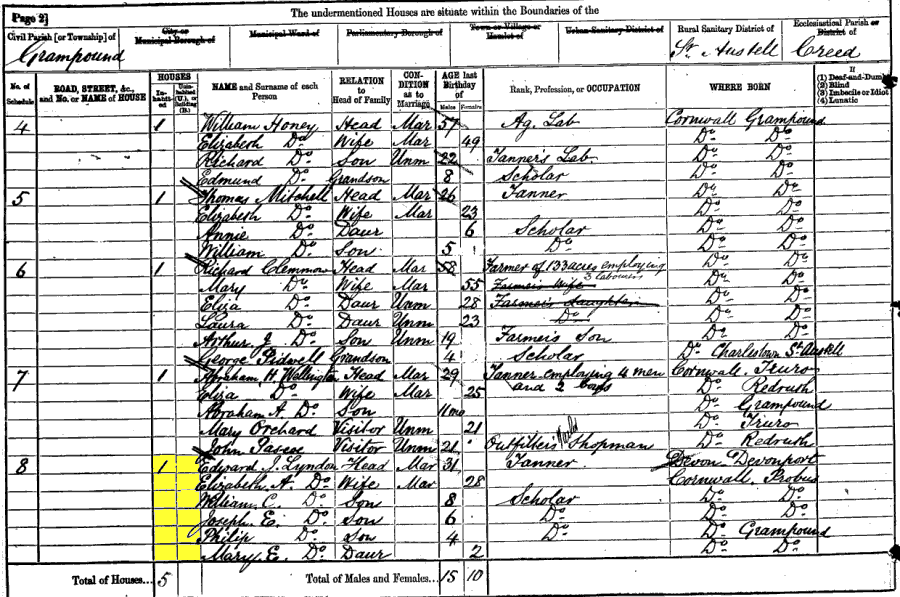 The undermentioned Houses are situate within the Boundaries of the
Page 2]
Civil Parish [or Township] of
Grampound
City or Municipal Borough of
Municipal Ward of
Parliamentary Borough of
Town or Village or Hamlet of
Urban Sanitary District of
Rural Sanitary District of
St Austell
Ecclesiastical Parish or District of
Creed
No. of Schedule
ROAD, STREET, &c., and No. or NAME of HOUSE
HOUSES
Inhabited
Uninhabited (U.), or Building (B.)
NAME and Surname of each Person
RELATION to Head of Family
CONDITION as to Marriage
AGE last Birthday of
Males
Females
Rank, Profession, or OCCUPATION
WHERE BORN
If
(1) Deaf-and-Dumb
(2) Blind
(3) Imbecile or Idiot
(4) Lunatic
4 1 William Honey Head Mar 57 Ag. Lab Cornwall Grampound
Elizabeth Do Wife Mar 49 Do Do
Richard Do Son Unm 22 Tanner's Lab Do Do
Edmund Do Grandson 8 Scholar Do Do
5 1 Thomas Mitchell Head Mar 26 Tanner Do Do
Elizabeth Do Wife Mar 23 Do Do
Annie Do Daur 6 Scholar Do Do
William Do Son 5 Do Do Do
6 1 Richard Clemmow Head Mar 58 Farmer of 133 acres employing 3 labourers Do Do
Mary Do Wife Mar 55 Farmer's Wife Do Do
Eliza Do Daur Unm 28 Farmer's Daughter Do Do
Laura Do Daur Unm 23 Do Do Do
Arthur J Do Son Unm 19 Farmer's Son Do Do
George Pidwell Grandson 4 Scholar Do Charlestown St Austell
7 1 Abraham H. Wallington Head Mar 29 Tanner employing 4 men and 2 boys Cornwall Truro
Eliza Do Wife Mar 25 Do Redruth
Abraham A. Do Son 11mo Do Grampound
Mary Orchard Visitor Unm 21 Do Truro
John Pascoe Visitor Unm 21 Outfitter's Shopman Do Redruth
8 1 Edward J. Lyndon Head Mar 31 Tanner Devon Devonport
Elizabeth A. Do Wife Mar 28 Cornwall Probus
William C. Do Son 8 Scholar Do Do
Joseph E. Do Son 6 Do Do Do
Philip Do Son 4 Do Do Grampound
Mary E. Do Daur 2 Do Do
Total of Houses... 5
Total of Males and Females... 15 10